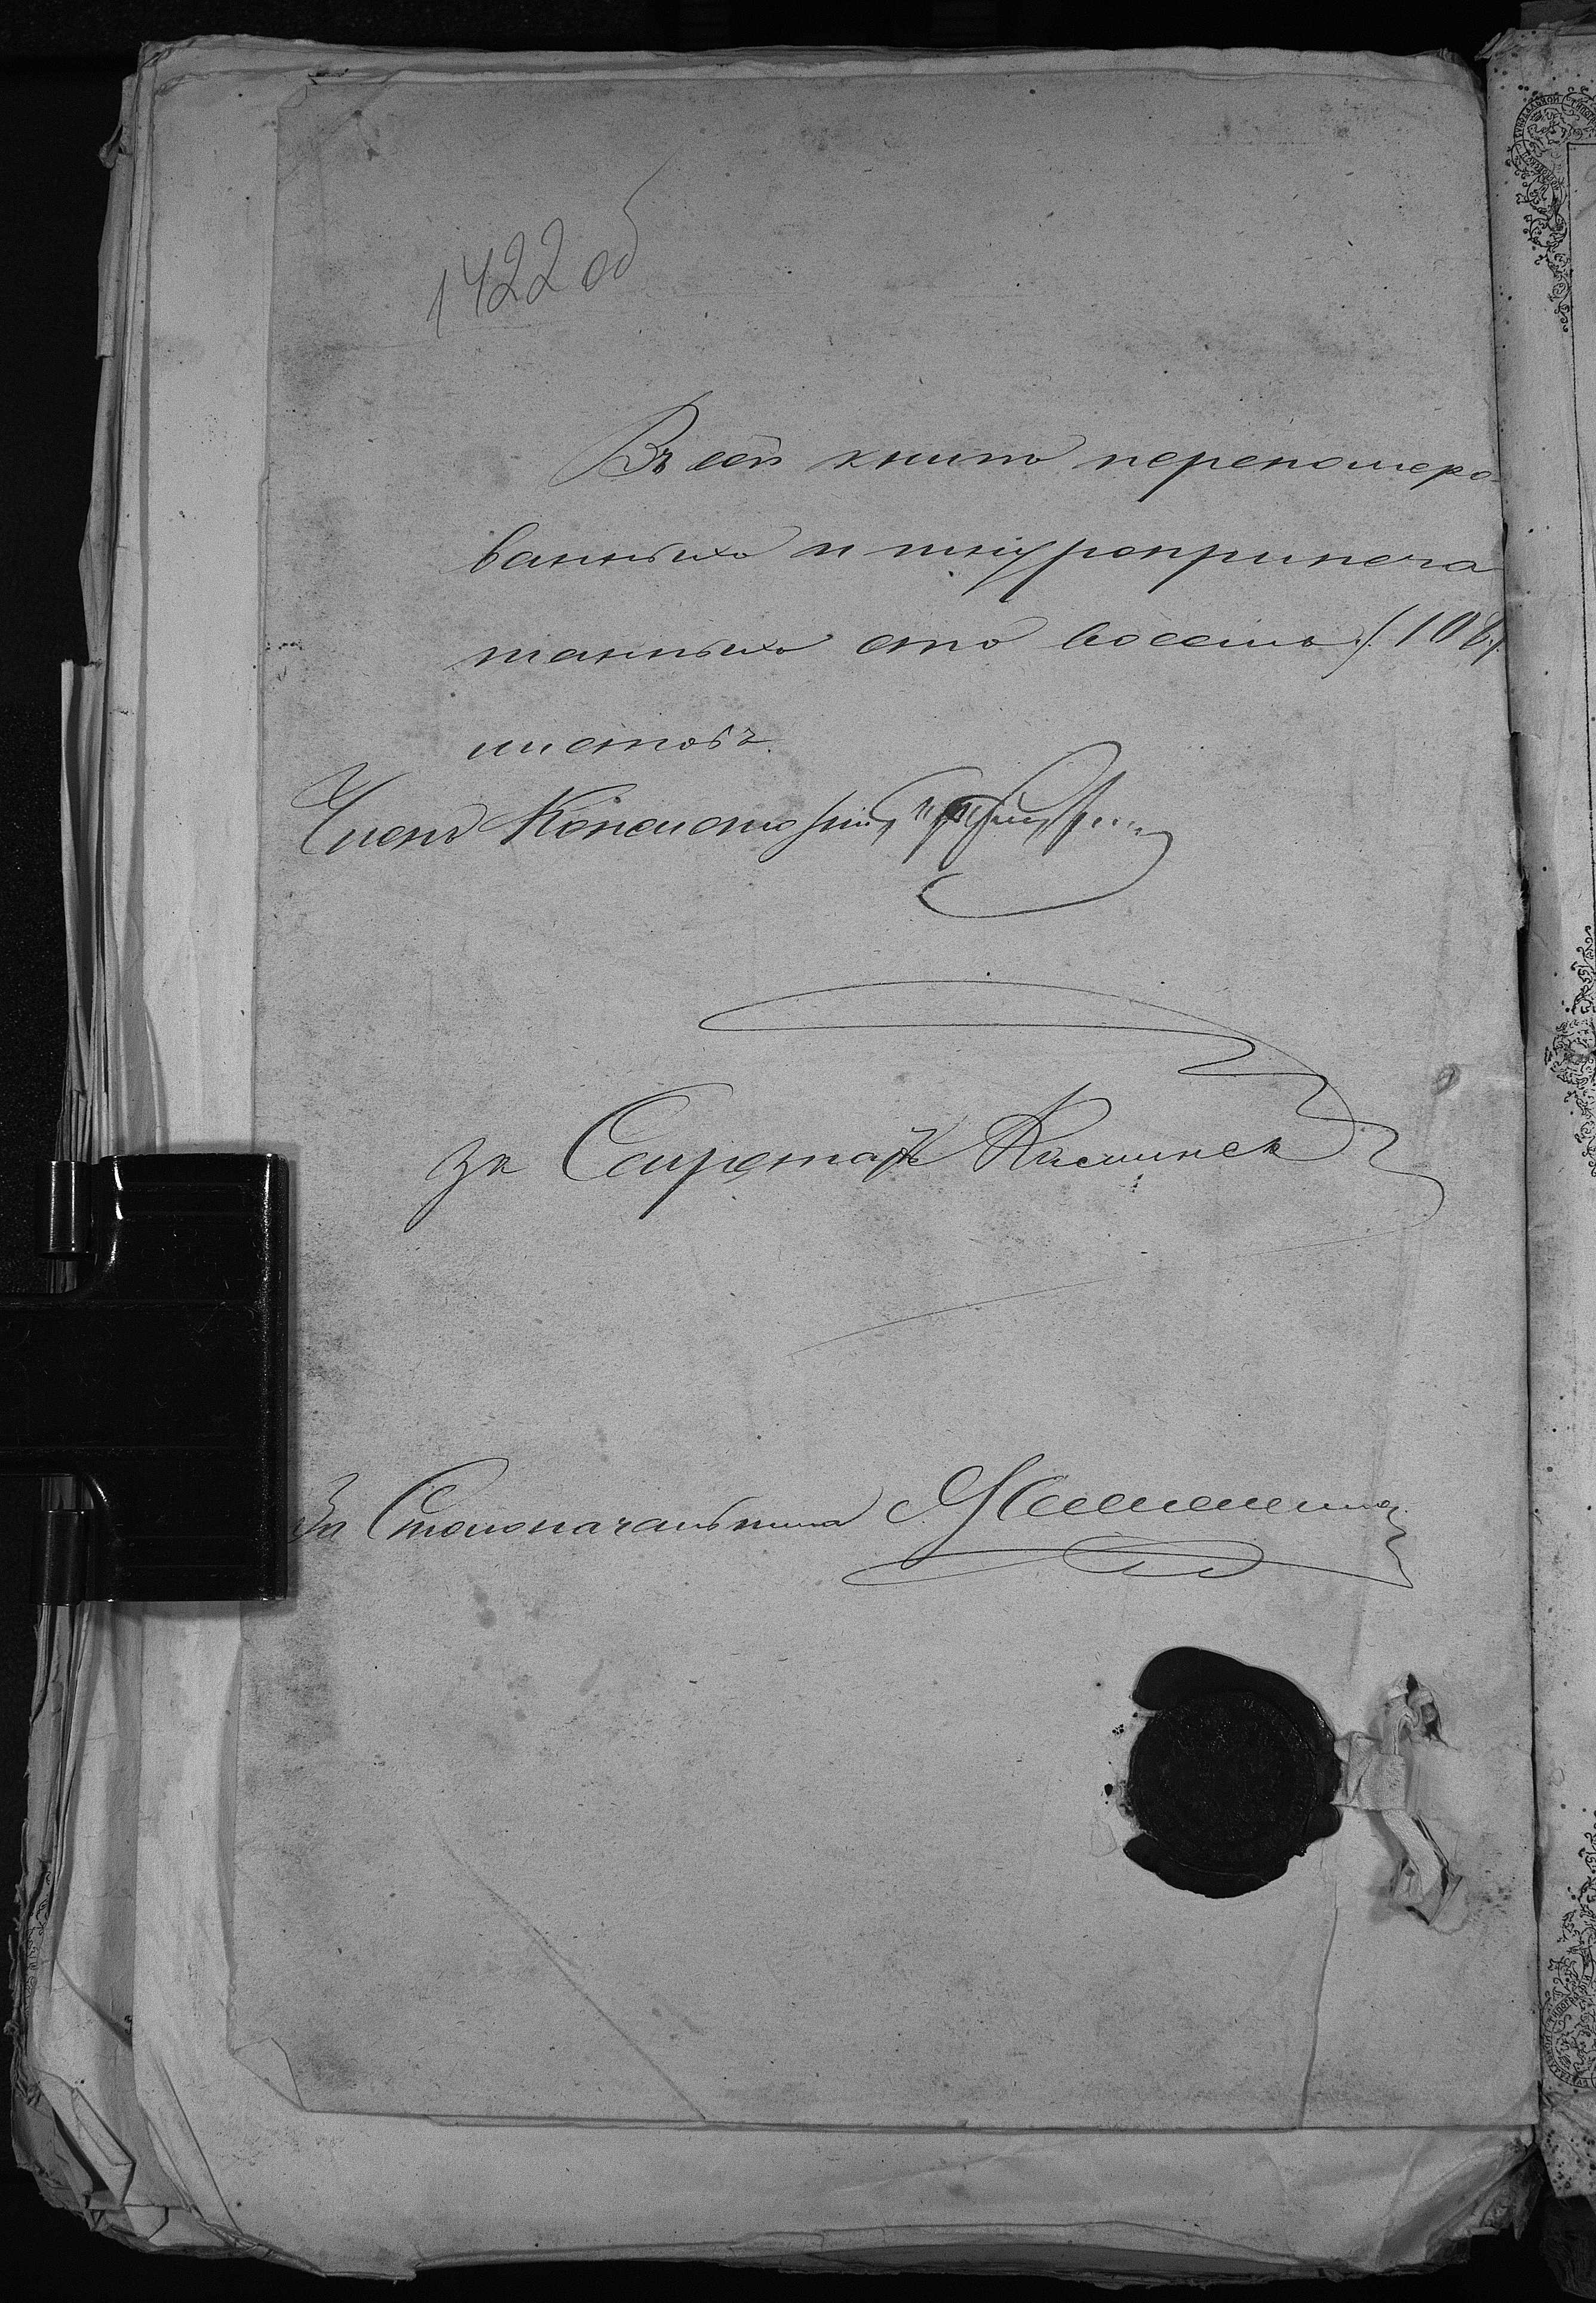 1422 об
Въ сей книгѣ переномеро-
ванныхъ и шнуроприпеча
танныхъ сто восемь (108)
листовъ.
Членъ Консисторіи,
За Секретаря
За Столоначальника